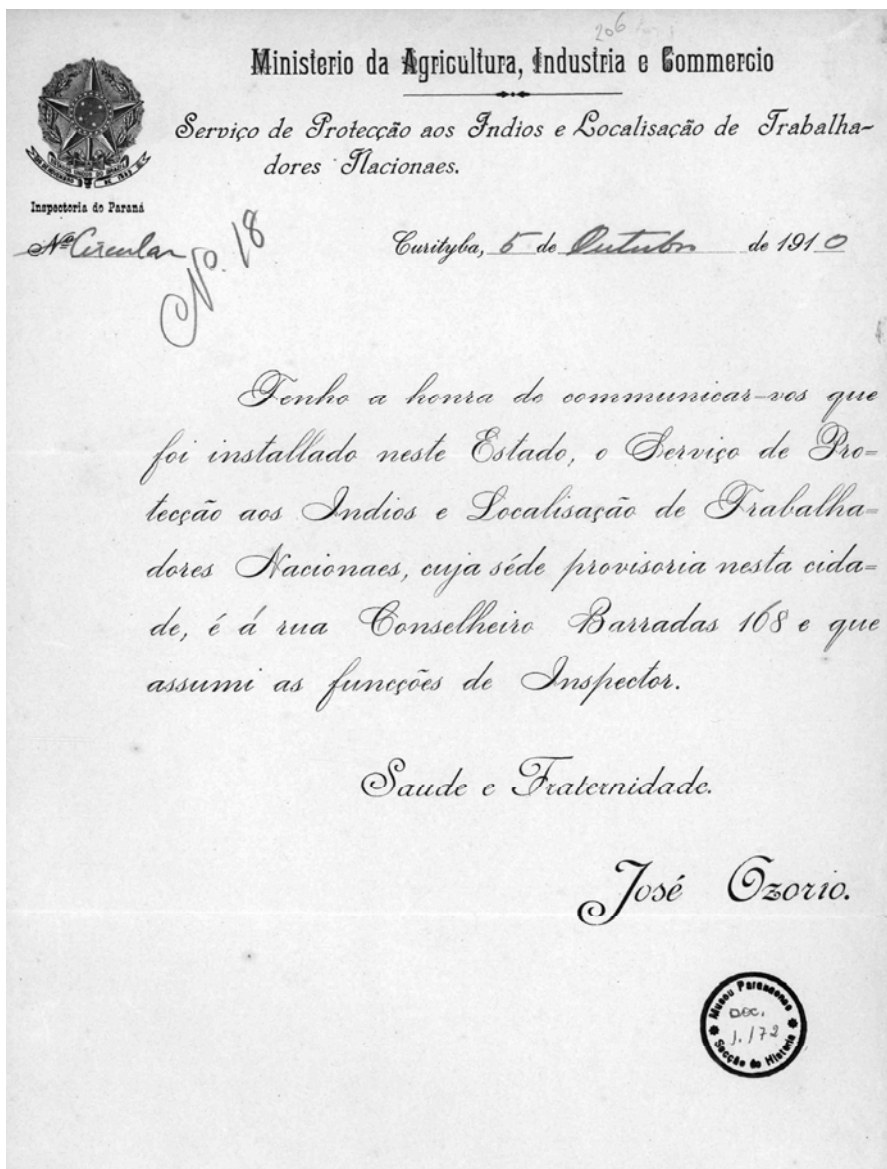 206
Ministerio da Agricultura, Industria e Commercio
Serviço de Protecção aos Indios e Localisação de Trabalha-
dores Nacionaes.
Inspectoria do Paraná
Nº Circular
Nº. 18
Curityba, 5 de Outubro de 1910
Tenho a honra de communicar-vos que
foi installado neste Estado, o Serviço de Pro=
tecção aos Indios e Localisação de Trabalha=
dores Nacionaes, cuja séde provisoria nesta cida=
de, é á rua Conselheiro Barradas 168 e que
assumi as funcções de Inspector.
Saude e Fraternidade.
José Ozorio.
Museu Paranaense
DOC.
J. 172
Secção de Historia